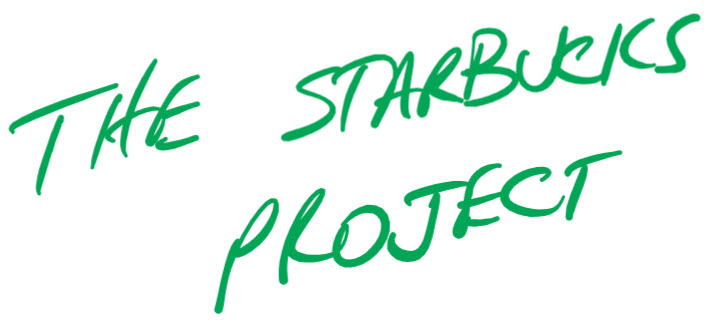 THE STARBUCKS
PROJECT